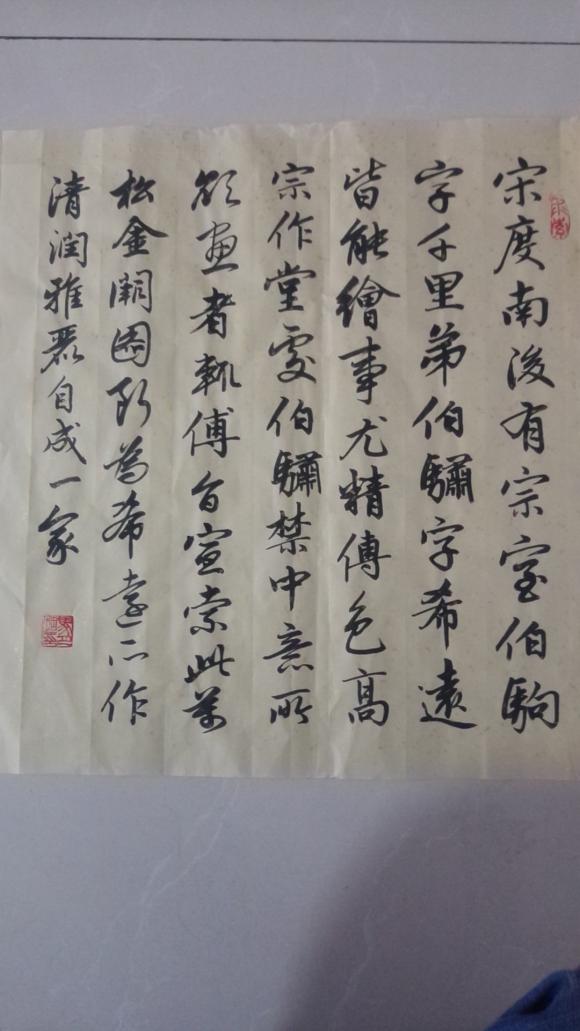 宋度南後有宗室伯駒
字千里弟伯驌字希遠
皆能繪事尤精傅色高
宗作堂處伯驌禁中意所
欲畫者輒傅旨宣索此萬
松金闕圖斷為希遠所作
清潤雅麗自成一家